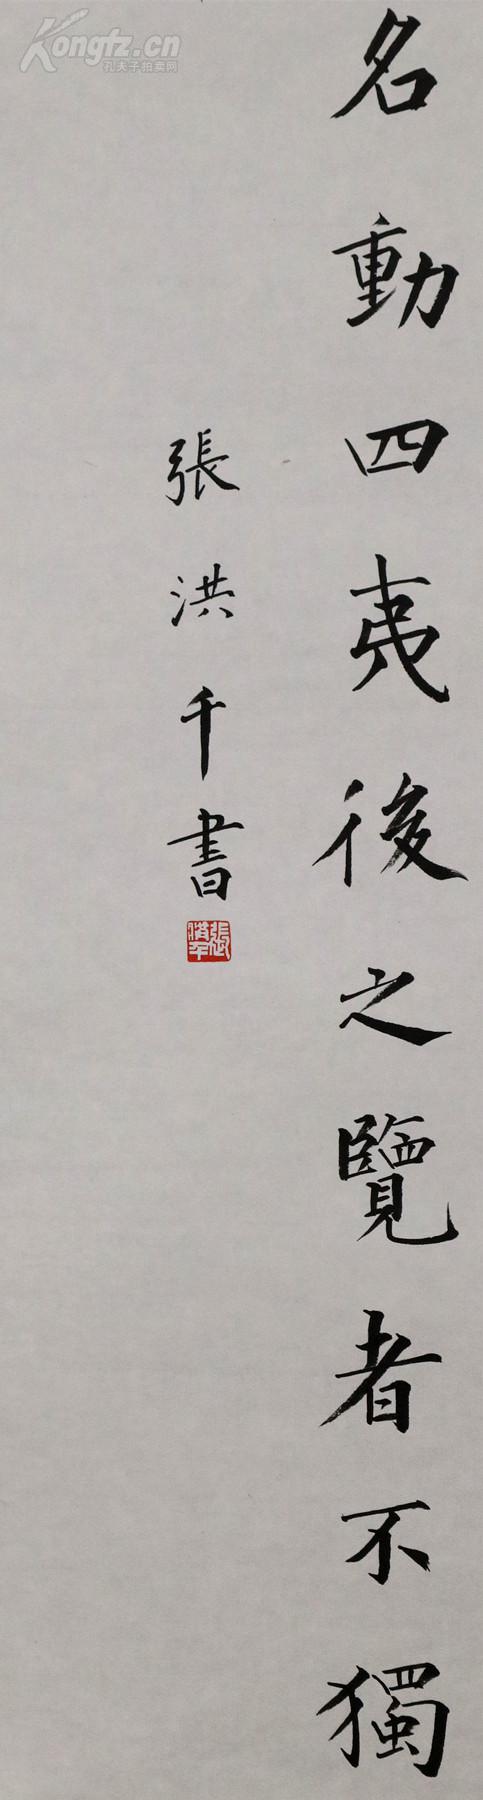 名動四夷後之覽者不獨
張洪千書
張洪千
Kongfz.cn
孔夫子拍卖网